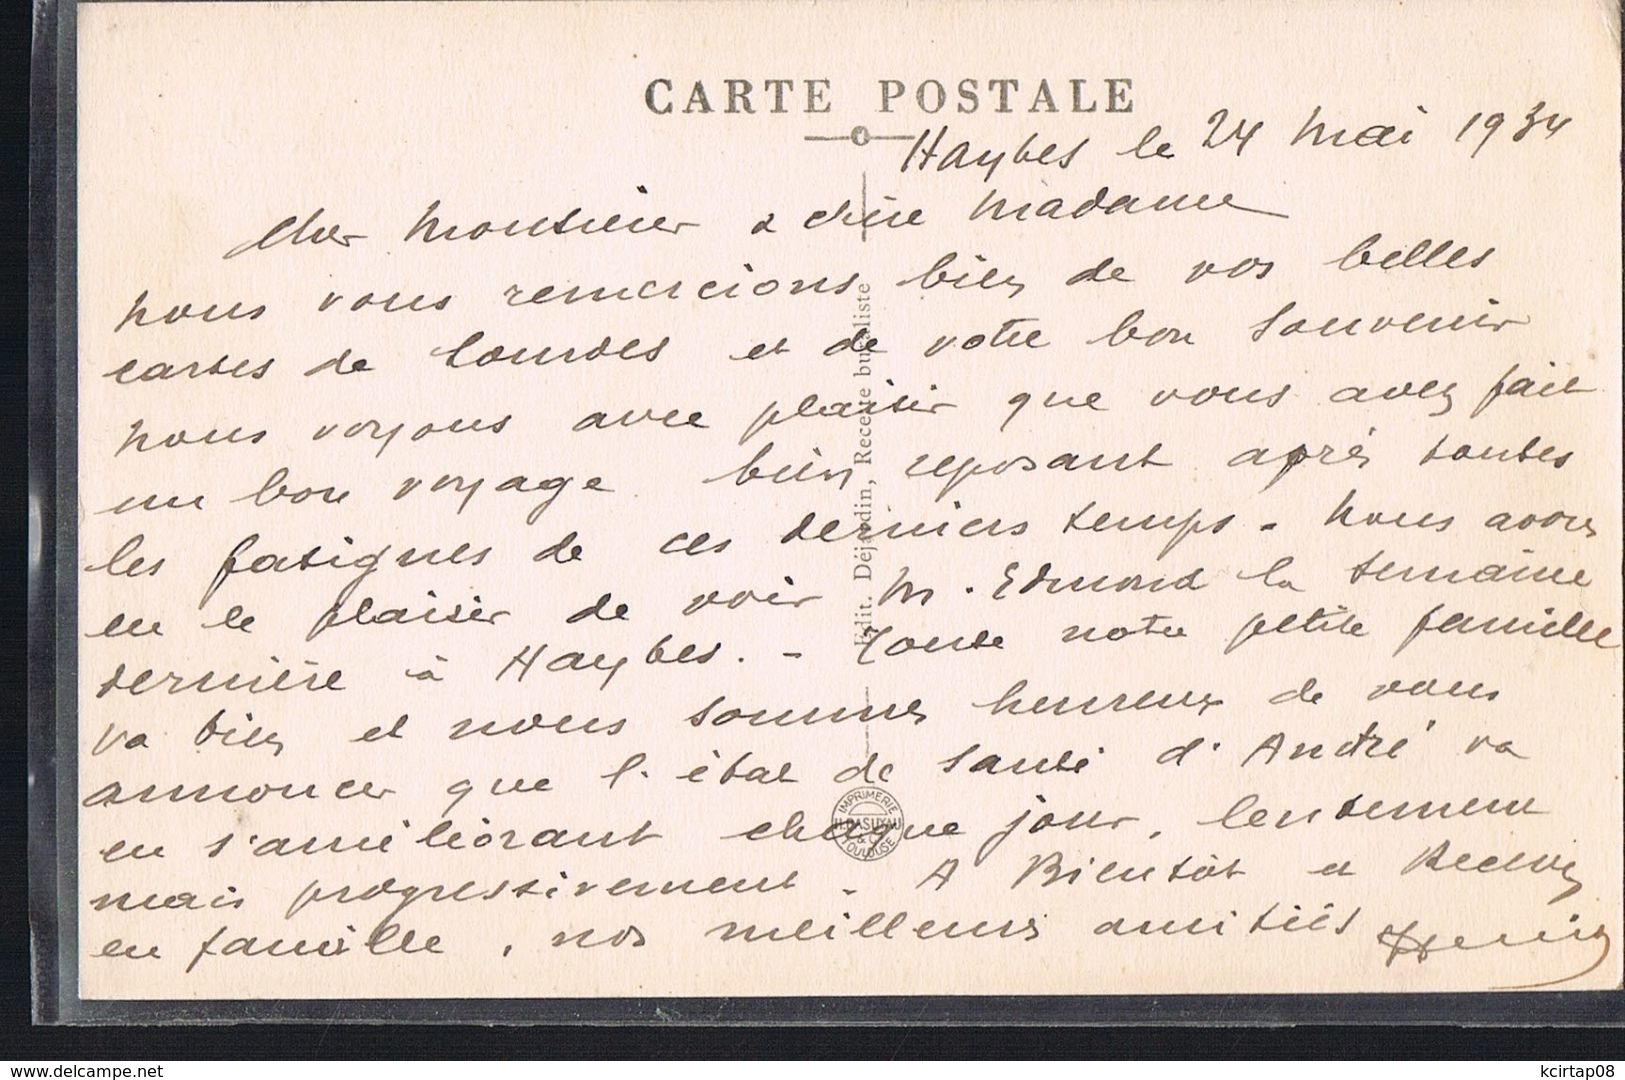 CARTE POSTALE
Haybes le 24 Mai 1934
Cher Monsieur & chère Madame
nous vous remercions bien de vos belles
cartes de Lourdes et de votre bon souvenir
nous voyons avec plaisir que vous avez fait
un bon voyage bien reposant après toutes
les fatigues de ces derniers temps - Nous avons
eu le plaisir de voir M. Edmond la semaine
dernière à Haybes. - Toute notre petite famille
va bien et nous sommes heureux de vous
annoncer que l'état de santé d'André va
en s'améliorant chaque jour, lentement
mais progressivement - A Bientôt et Recevez
en famille, nos meilleures amitiés
Edit. Déjardin, Recette buraliste
IMPRIMERIE
& C
TOULOUSE
delcampe.net
kcirtap08